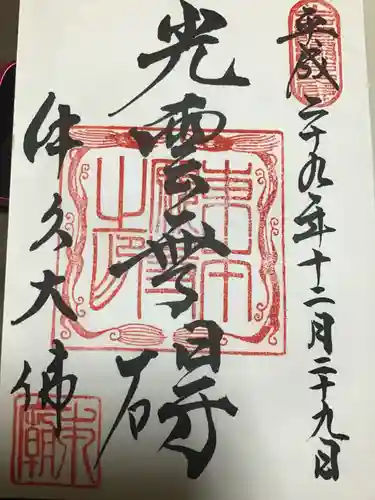 平成二十九年十二月二十九日
光雲無碍
牛久大佛